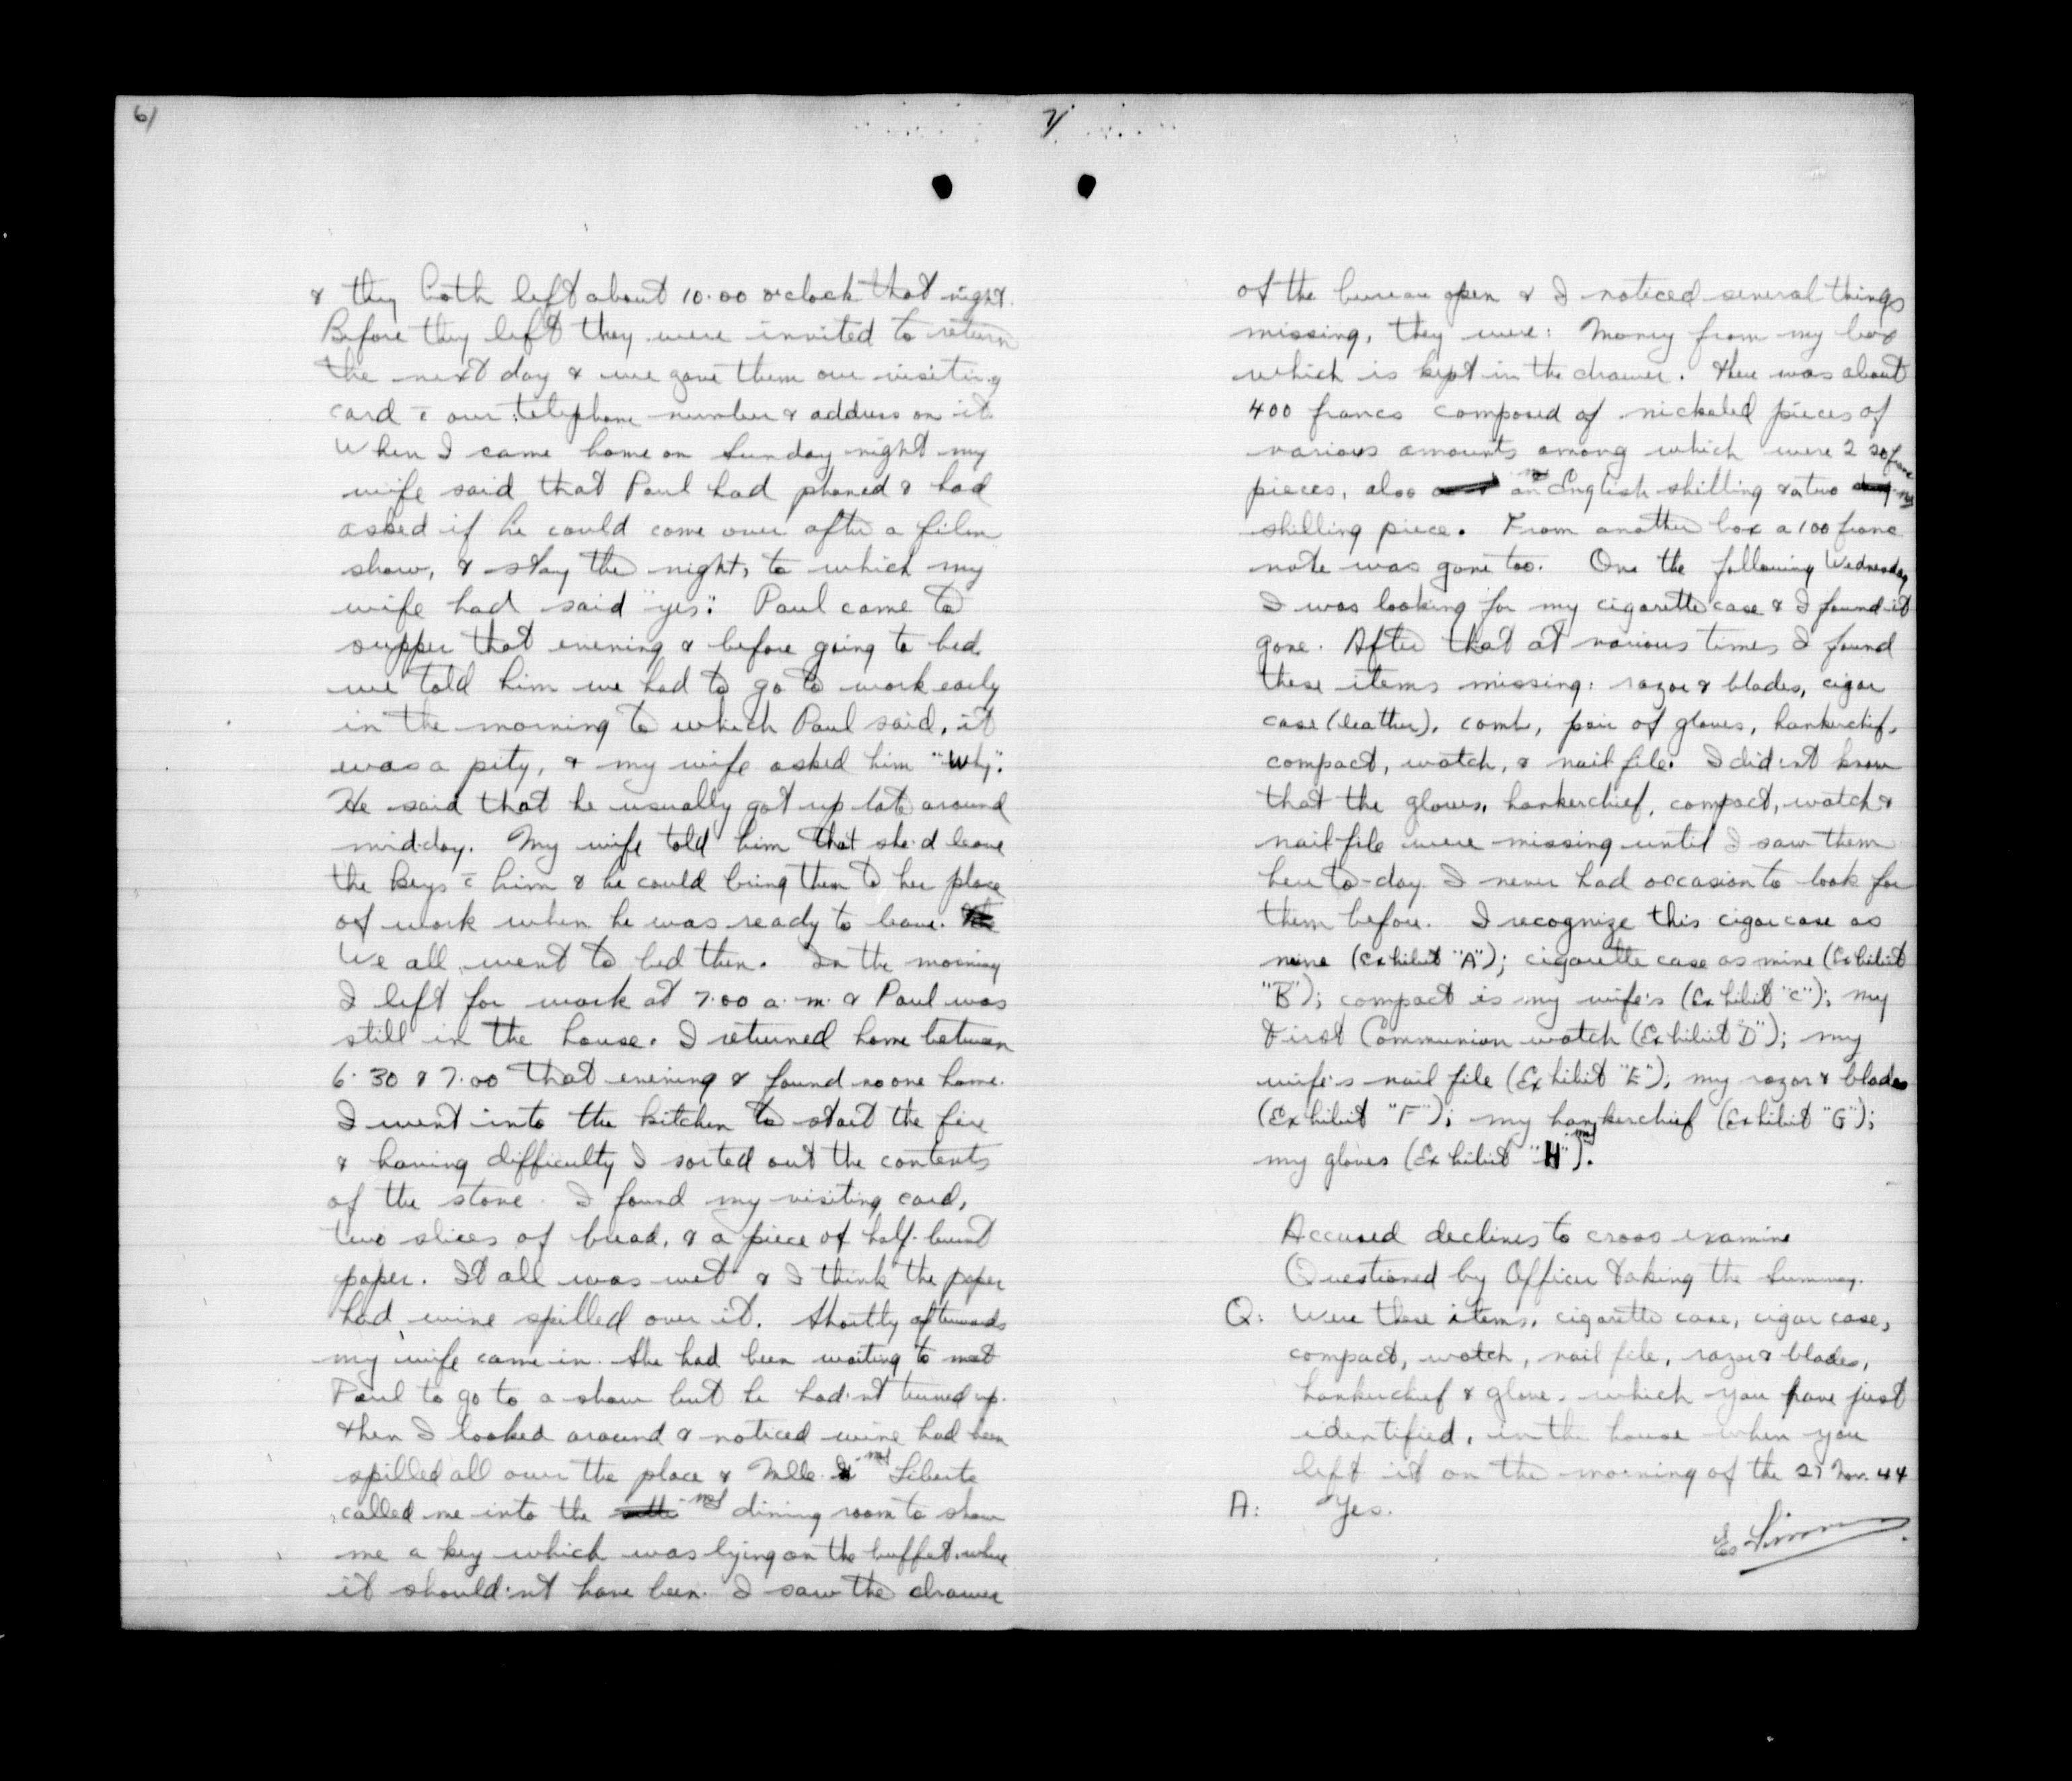 6/
& they both left about 10.00 o'clock that night.
Before they left they were invited to return
the next day & we gave them our visiting
card c̄ our telephone number & address on it.
When I came home on Sunday night my
wife said that Paul had phoned & had
asked if he could come over after a film
show, & stay the night, to which my
wife had said "yes". Paul came to
supper that evening & before going to bed
we told him we had to go to work early
in the morning to which Paul said, it
was a pity, & my wife asked him "Why".
He said that he usually got up late around
mid-day. My wife told him that she'd leave
the keys c̄ him & he could bring them to her place
of work when he was ready to leave.
We all went to bed then. In the morning
I left for work at 7.00 a.m. & Paul was
still in the house. I returned home between
6.30 & 7.00 that evening & found no one home.
I went into the kitchen to start the fire
& having difficulty I sorted out the contents
of the stove. I found my visiting card,
two slices of bread, & a piece of half-burnt
paper. It all was wet & I think the paper
had wine spilled over it. Shortly afterwards
my wife came in. She had been waiting to meet
Paul to go to a show but he had'nt turned up.
Then I looked around & noticed wine had been
spilled all over the place & Mlle. Liberte
called me into the dining room to show
me a key which was lying on the buffet where
it should'nt have been. I saw the drawer
7/
of the bureau open & I noticed several things
missing, they were: Money from my box
which is kept in the drawer. There was about
400 francs composed of nickeled pieces of
various amounts among which were 2 20 franc
pieces, also an English shilling & a two
shilling piece. From another box a 100 franc
note was gone too. One the following Wednesday
I was looking for my cigarette case & I found it
gone. After that at various times I found
these items missing: razor & blades, cigar
case (leather), comb, pair of gloves, hankerchief,
compact, watch, & nail file. I did'nt know
that the gloves, hankerchief, compact, watch &
nail file were missing until I saw them
here to-day. I never had occasion to look for
them before. I recognize this cigar case as
mine (Exhibit "A"); cigarette case as mine (Exhibit
"B"); compact is my wife's (Exhibit "C"); my
First Communion watch (Exhibit "D"); my
wife's nail file (Exhibit "E"); my razor & blades
(Exhibit "F"); my hankerchief (Exhibit "G");
my gloves (Exhibit "H").
Accused declines to cross examine
Questioned by Officer taking the Summary.
Q: Were these items, cigarette case, cigar case,
compact, watch, nail file, razor & blades,
hankerchief & glove, which you have just
identified, in the house when you
left it on the morning of the 27 Nov. 44
A: Yes.